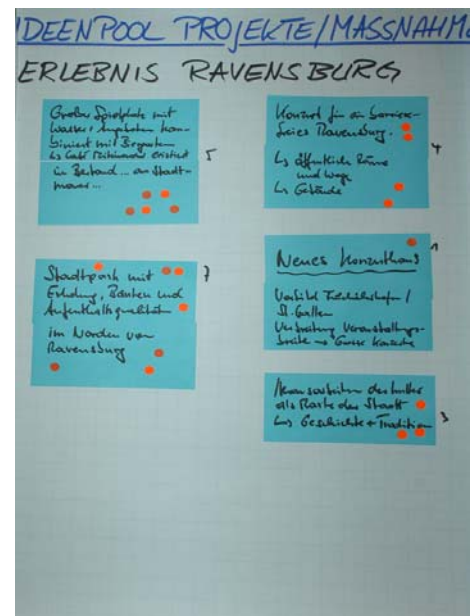 IDEENPOOL PROJEKTE/MASSNAHME
ERLEBNIS RAVENSBURG
Großer Spielplatz mit
Wasser, Angeboten kom-
biniert mit Biergarten
↳ Café Miteinander existiert
im Bestand ... an Stadt-
mauer ...
5
Stadtpark mit
Erholung, Bauten und
Aufenthaltsqualitäten
im Norden von
Ravensburg
7
Konzept für ein barriere-
freies Ravensburg.
↳ öffentliche Räume
und Wege
↳ Gebäude
4
Neues Konzerthaus
Vorbild Friedrichshafen /
St. Gallen
Verbreitung Veranstaltungs-
breite → Gute
1
Herausarbeiten des
als Marke der Stadt
↳ Geschichte + Tradition
3